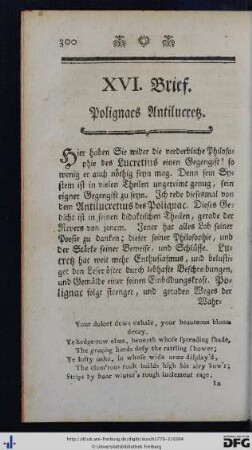 300
XVI. Brief.
Polignacs Antilucretz.
Hier haben Sie wider die verderbliche Philoso-
phie des Lucretius einen Gegengift! so
wenig er auch nöthig seyn mag. Denn sein Sy-
stem ist in vielen Theilen ungereimt genug, sein
eigner Gegengift zu seyn. Ich rede diesesmal von
dem Antilucretius des Polignac. Dieses Ge-
dicht ist in seinen didaktischen Theilen, gerade der
Revers von jenem. Jener hat alles Lob seiner
Poesie zu danken; dieser seiner Philosophie, und
der Stärke seiner Beweise, und Schlüsse. Lu-
cretz hat weit mehr Enthusiasmus, und belusti-
get den Leser öfter durch lebhafte Beschreibungen,
und Gemälde einer feinen Einbildungskraft. Po-
lignac folgt strenger, und geraden Weges der
Wahr-
Your dulcet dews exhale, your beauteous bloom
decay.
Ye hedge-row elms, beneath whose spreading shade,
The grazing herds defy the rattling shower;
Ye lofty oaks, in whose wide arms display'd,
The clam'rous rook builds high his airy bow'r;
Stript by hoar winter's rough inclement rage,
In
http://dl.ub.uni-freiburg.de/diglit/dusch1773-2/0304
© Universitätsbibliothek Freiburg
gefördert durch die
DFG